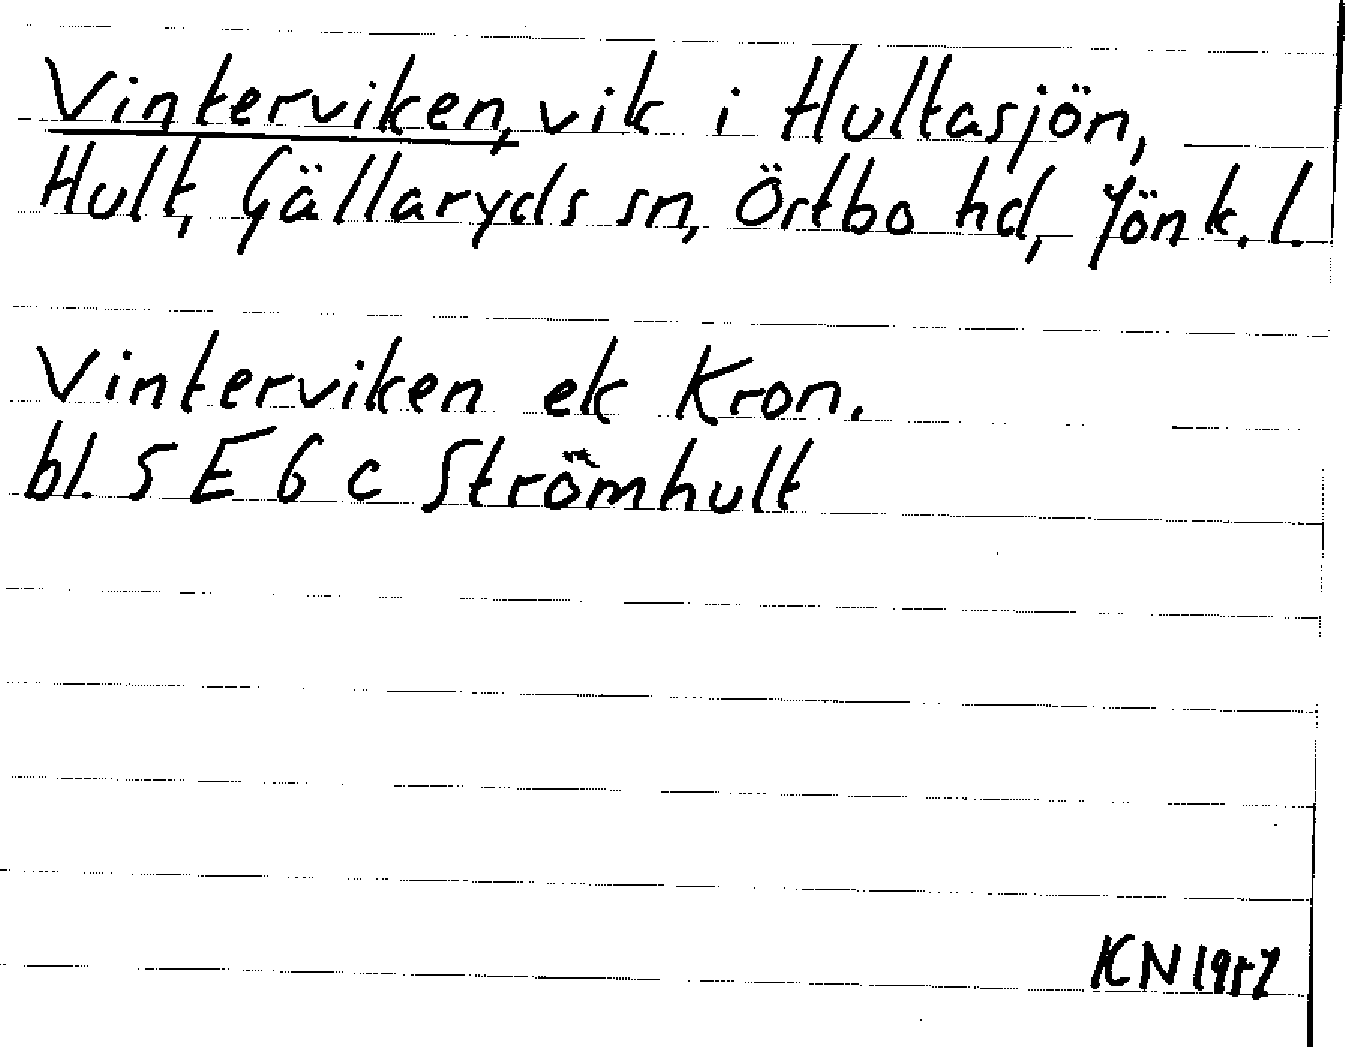 Vinterviken, vik i Hultasjön,
Hult, Gällaryds sn, Östbo hd, Jönk. l.
Vinterviken ek Kron.
bl. 5 E 6 c Strömhult
KN 1957